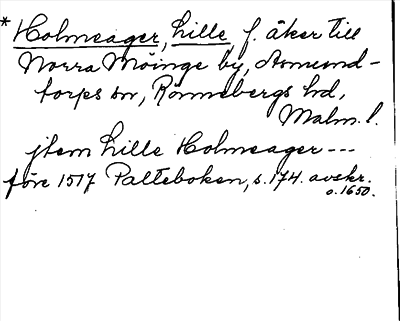 * Holmeager, Lille, f. åker till
Norra Möinge by, Asmund-
torps sn, Rönnebergs hd,
Malm. l.
jtem Lille Holmeager ---
före 1517 Palteboken, s. 174. avskr.
o. 1650.